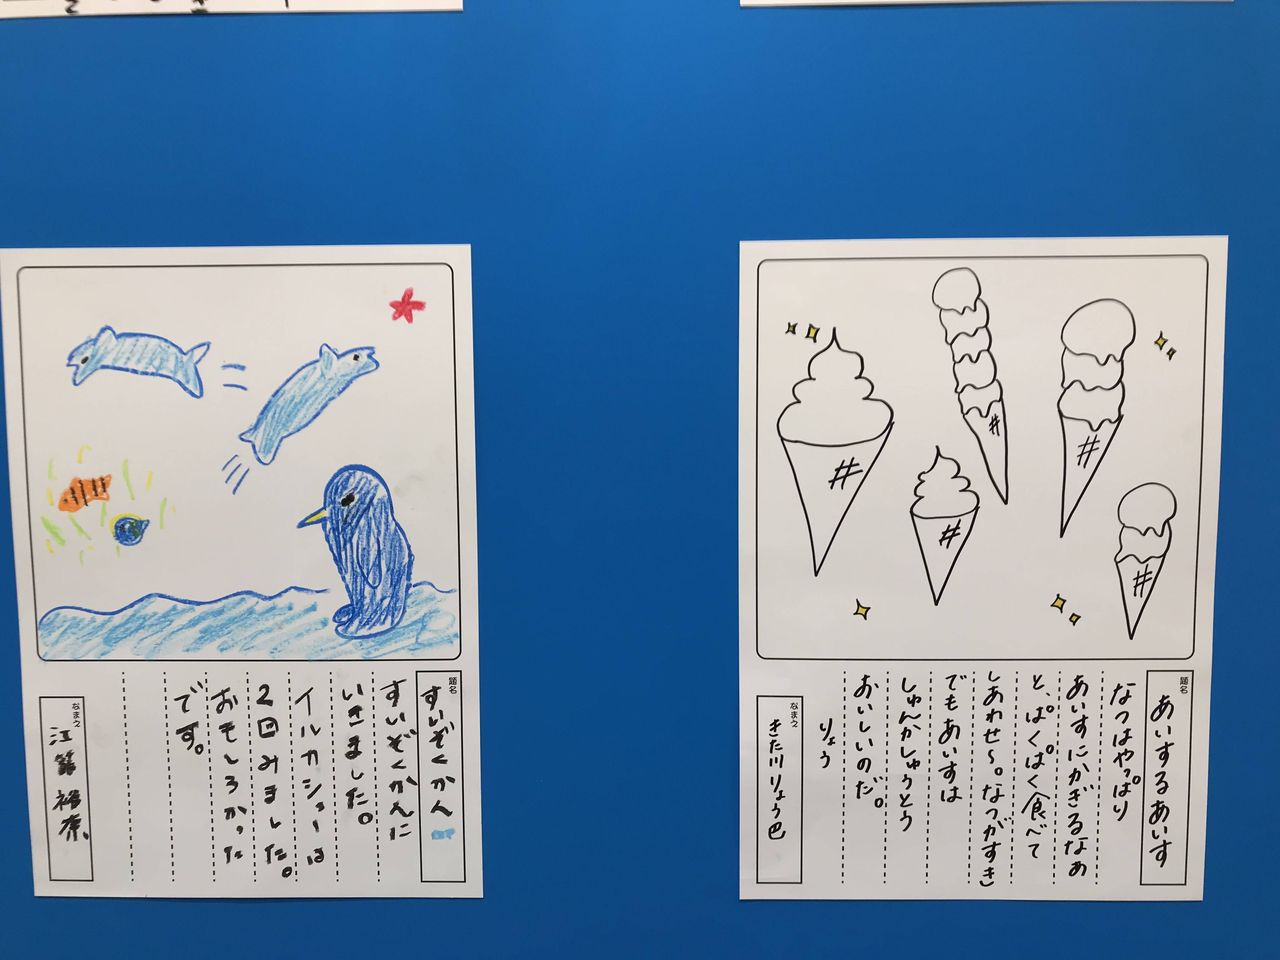 題名
すいぞくかん
すいぞくかんに
いきました。
イルカショーは
2回みました。
おもしろかった
です。
なまえ
江籠 裕奈
題名
あいするあいす
なつはやっぱり
あいすにかぎるなぁ
と、ぱくぱく食べて
しあわせ〜。なつがすき
でもあいすは
しゅんかしゅうとう
おいしいのだ。
りょう
なまえ
きた川りょう巴